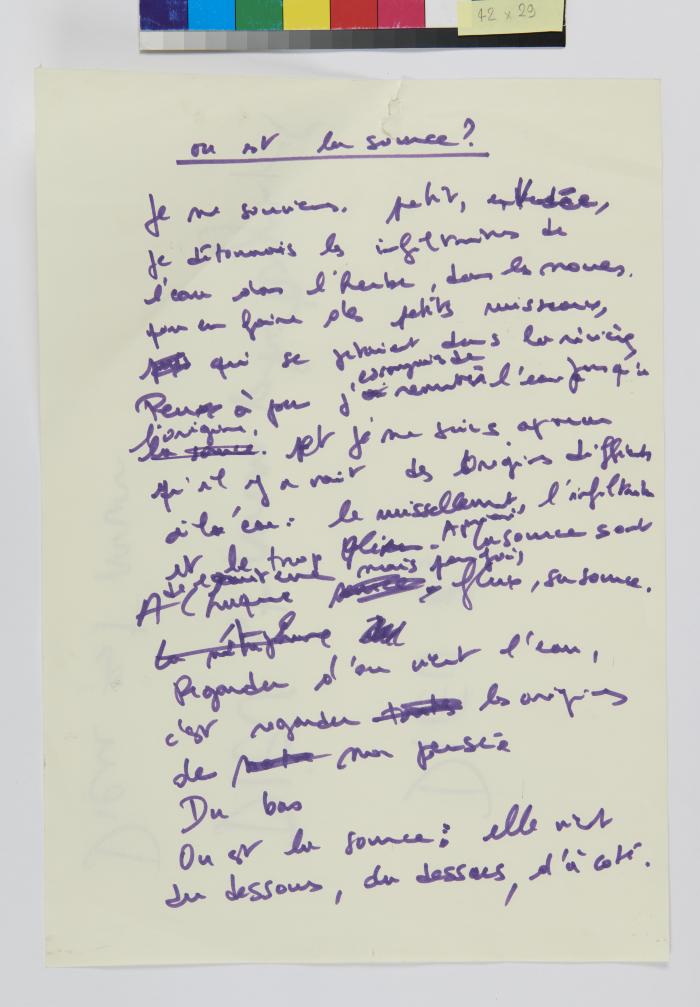 42 x 29
où est la source?
Je me souviens. petit,
je détournais les infiltrations de
l'eau dans l'herbe, dans les noues.
pour en faire des petits ruisseaux,
qui se jetaient dans la rivière
Peu à peu j'ai remonté l'eau jusqu'à
l'origine.
la source. et je me suis aperçu
qu'il y avait des origines différentes
à l'eau: le ruissellement, l'infiltration
et le trop plein. la source sont
mais
A chaque source flux, sa source.
La métaphore
Regarder d'où vient l'eau,
c'est regarder toutes les origines
de notre ma pensée
Du bas
Où est la source: elle vient
du dessous, du dessus, d'à coté.